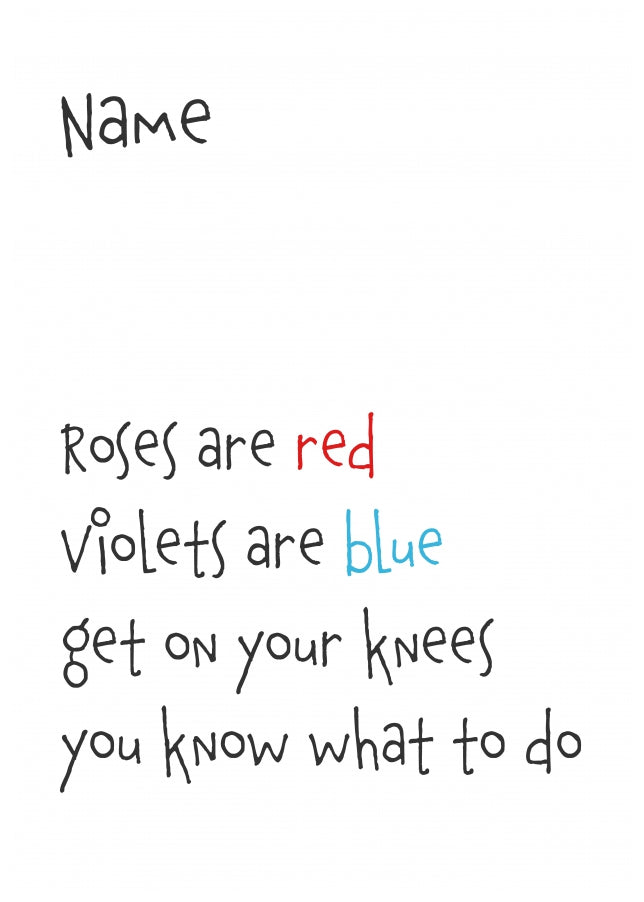 Name
Roses are red
violets are blue
get on your knees
you know what to do